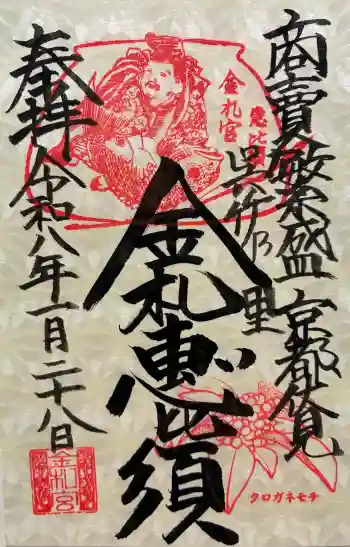 商賣繁盛 京都伏見
黒竹乃里
金札恵比須
奉拝 令和八年一月二十八日
金札宮
恵比須
金札宮
クロガネモチ